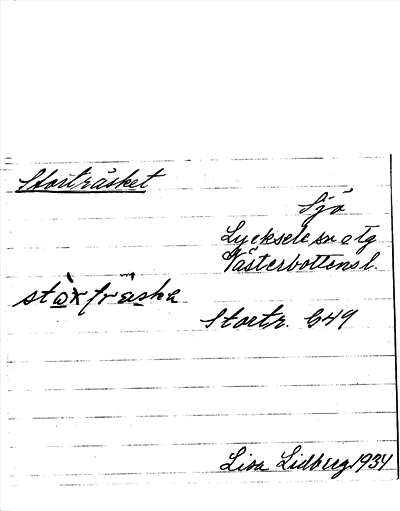 Storträsket
Sjö
Lycksele sn o tg
Västerbottensl.
Stortr. G49
Lisa Lidberg 1934